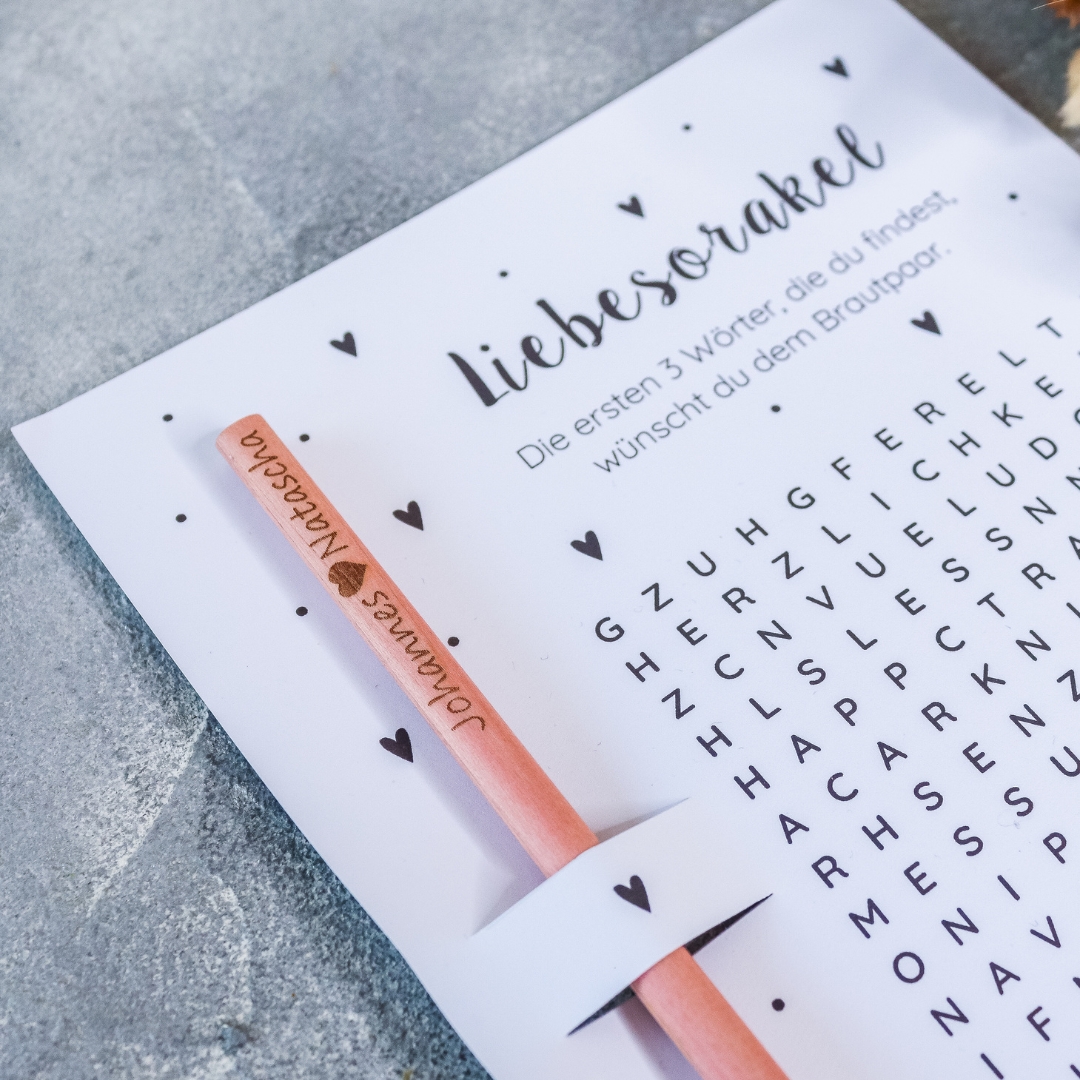 Liebesorakel
Die ersten 3 Wörter, die du findest,
wünscht du dem Brautpaar.
Johannes Natascha
G Z U H G F E R E L T
H E R Z L I C H K E
Z C N V U E L U D
H L S L E S S N
H A P P C T R A
A C A R K N I
R H S E N Z
M E S S U
O N I P
N A V
I F